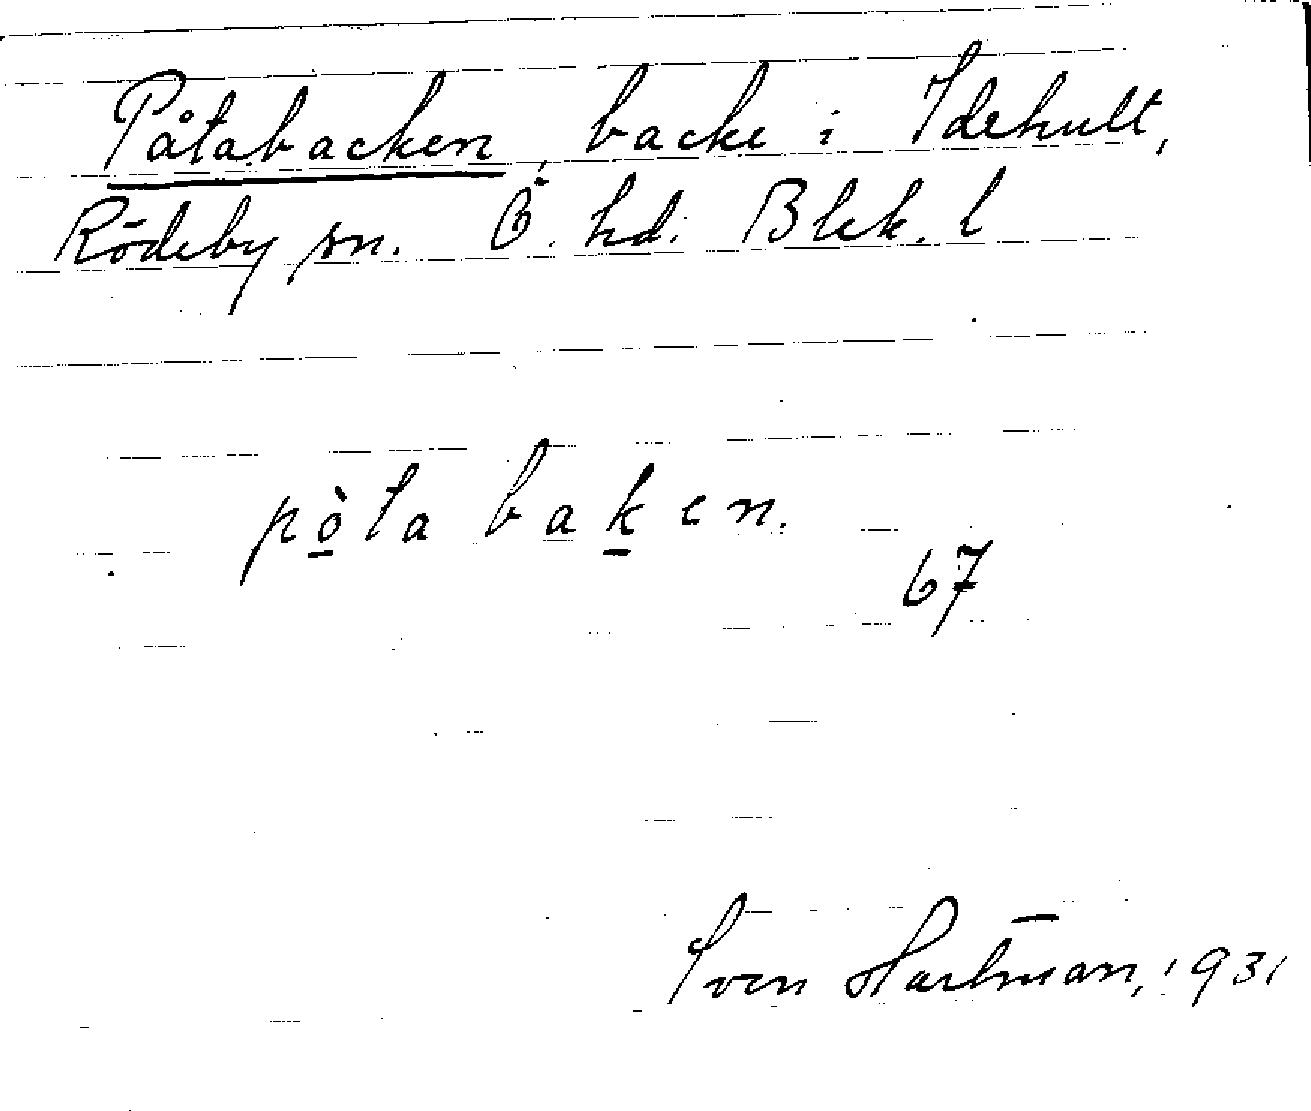 Påtabacken, backe i Idehult,
Rödeby sn. Ö. hd. Blek. l
pò̠ta bak̠en.
67
Sven Hartman, 1931